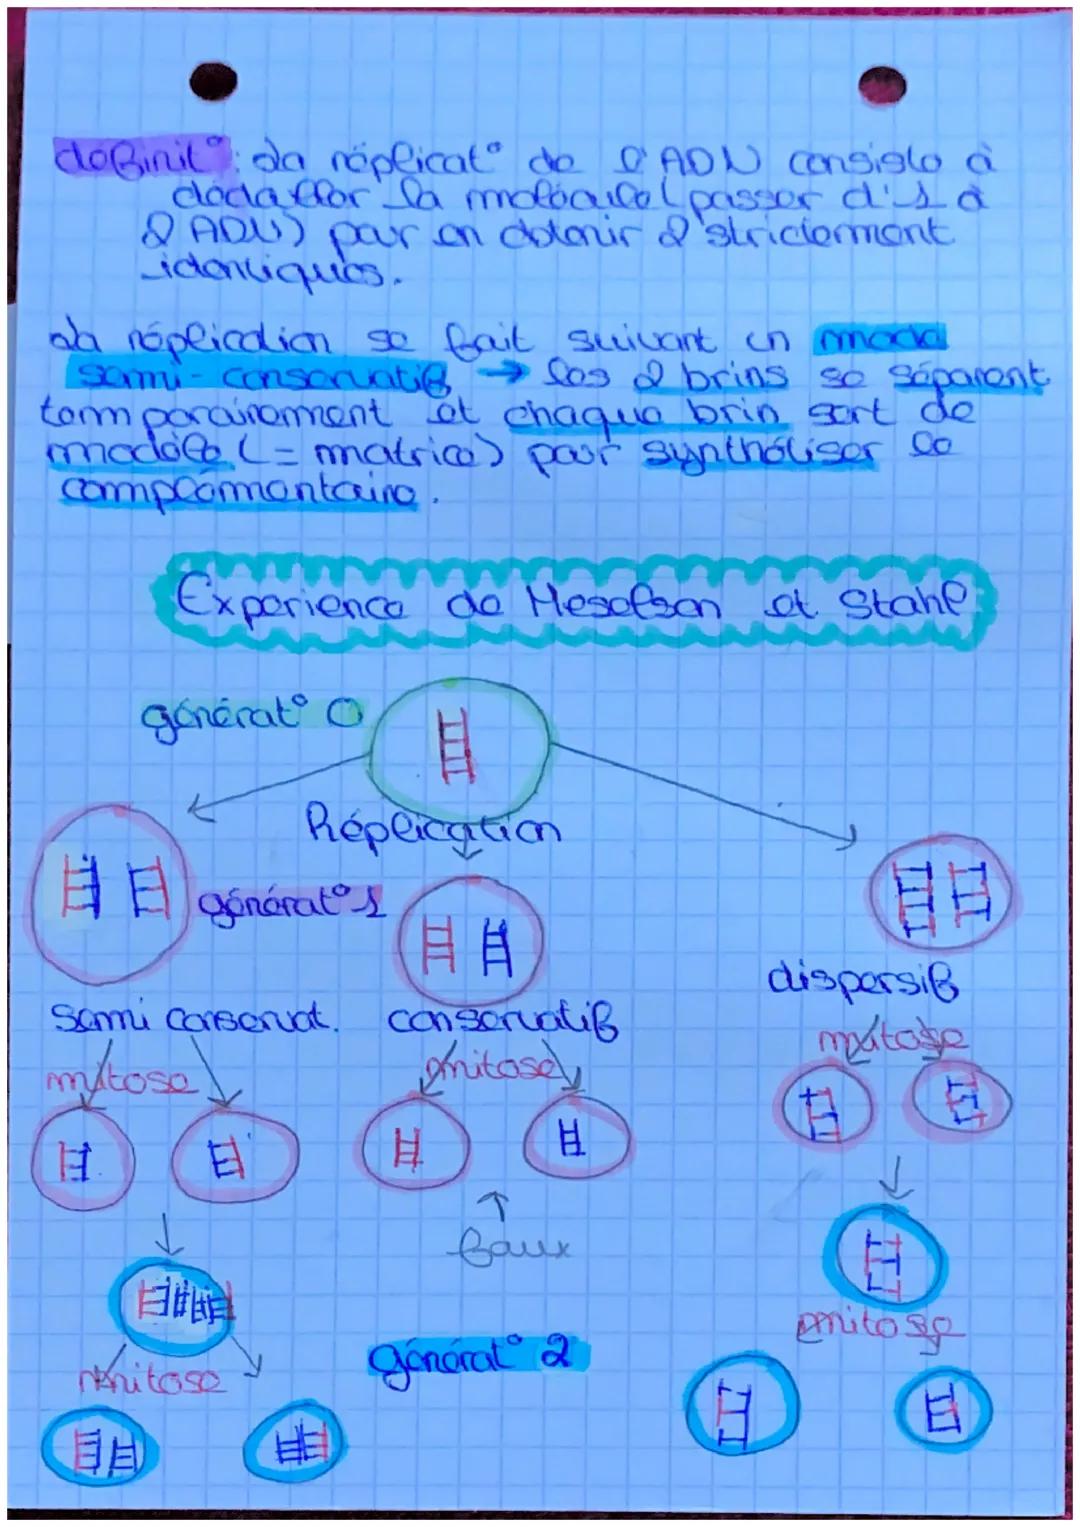 définit° : La réplicat° de l'ADN consiste à
dédoubler la molécule (passer d'1 à
2 ADN) pour en obtenir 2 strictement
identiques.
La réplication se fait suivant un mode
semi-conservatif → les 2 brins se séparent
temporairement et chaque brin sert de
modèle (= matrice) pour synthétiser le
complémentaire.
Expérience de Meselson et Stahl
générat° 0
Réplication
générat° 1
dispersif
semi conservat. conservatif
mitose mitose mitose
faux
mitose
générat° 2
mitose